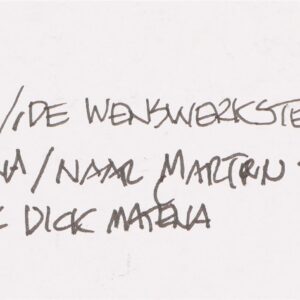 / DE WENSWERKSTE
/ NAAR MARTEN
DICK MATENA